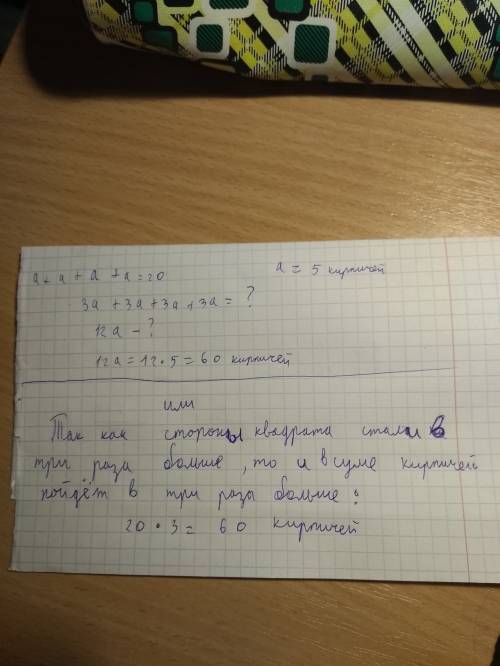 a + a + a + a = 20
a = 5 кирпичей
3a + 3a + 3a + 3a = ?
12a - ?
12a = 12 • 5 = 60 кирпичей
или
Так как стороны квадрата стали в
три раза больше, то и в суме кирпичей
пойдёт в три разы больше:
20 • 3 = 60 кирпичей